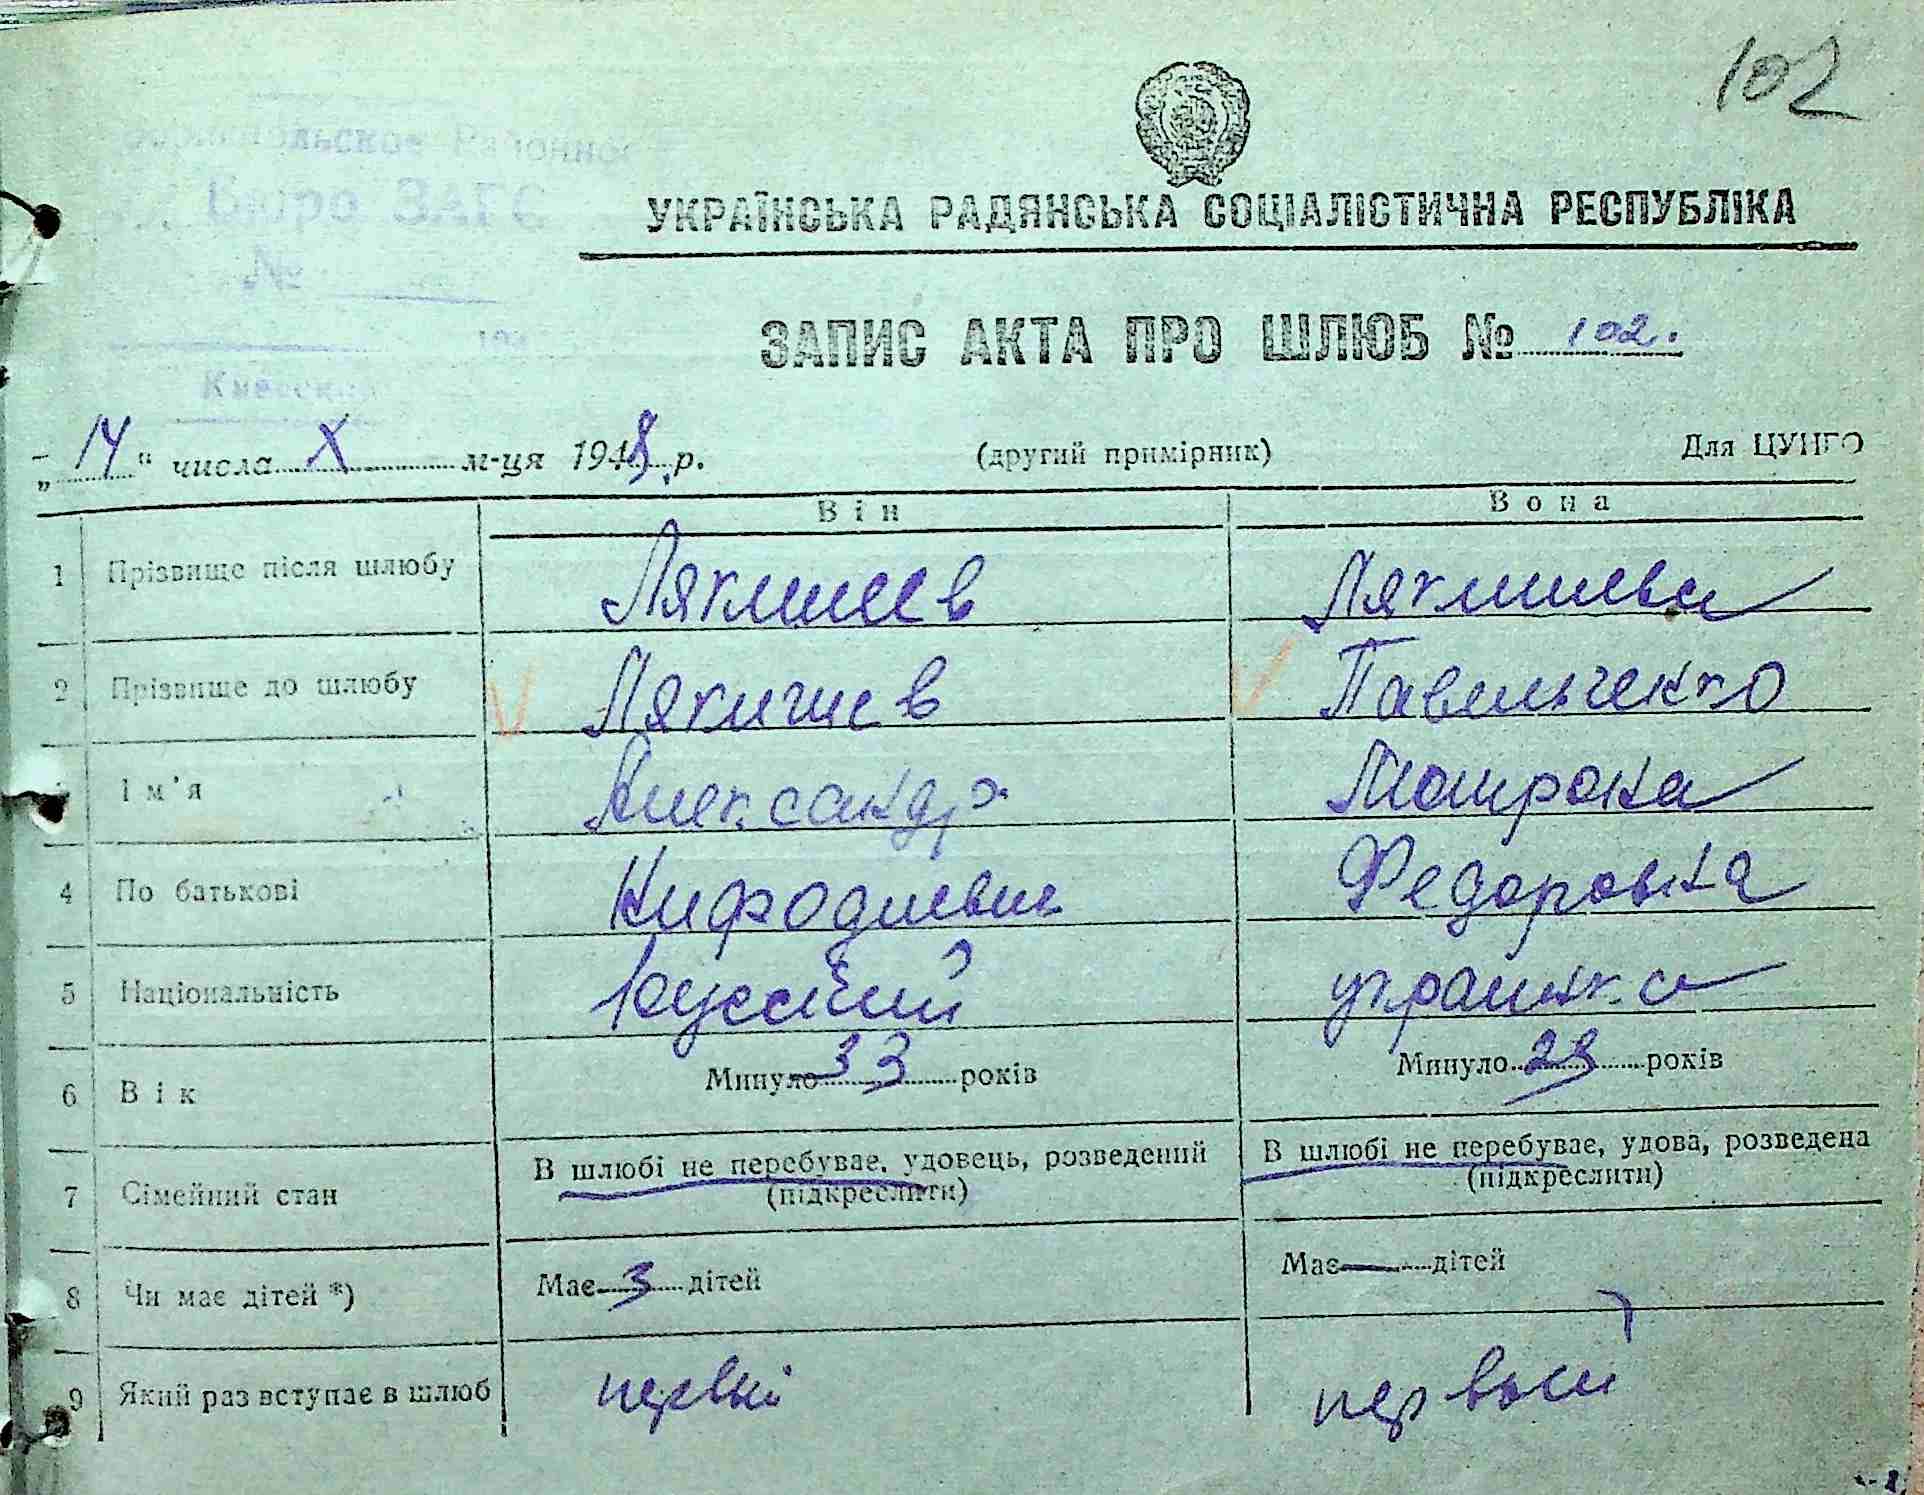 102
Районное
Бюро ЗАГС
№
194
Киевской
УКРАЇНСЬКА РАДЯНСЬКА СОЦІАЛІСТИЧНА РЕСПУБЛІКА
ЗАПИС АКТА ПРО ШЛЮБ № 102.
„14“ числа X м-ця 1948 р. (другий примірник) Для ЦУНГО
Він Вона
1 Прізвище після шлюбу
2 Прізвище до шлюбу Павельченко
Ім'я Александр
4 По батькові Федоровна
5 Національність Русский украинка
6 Вік Минуло 33 років Минуло 28 років
7 Сімейний стан В шлюбі не перебуває, удовець, розведений В шлюбі не перебуває, удова, розведена
(підкреслити) (підкреслити)
8 Чи має дітей *) Має 3 дітей Має — дітей
9 Який раз вступає в шлюб первый первый